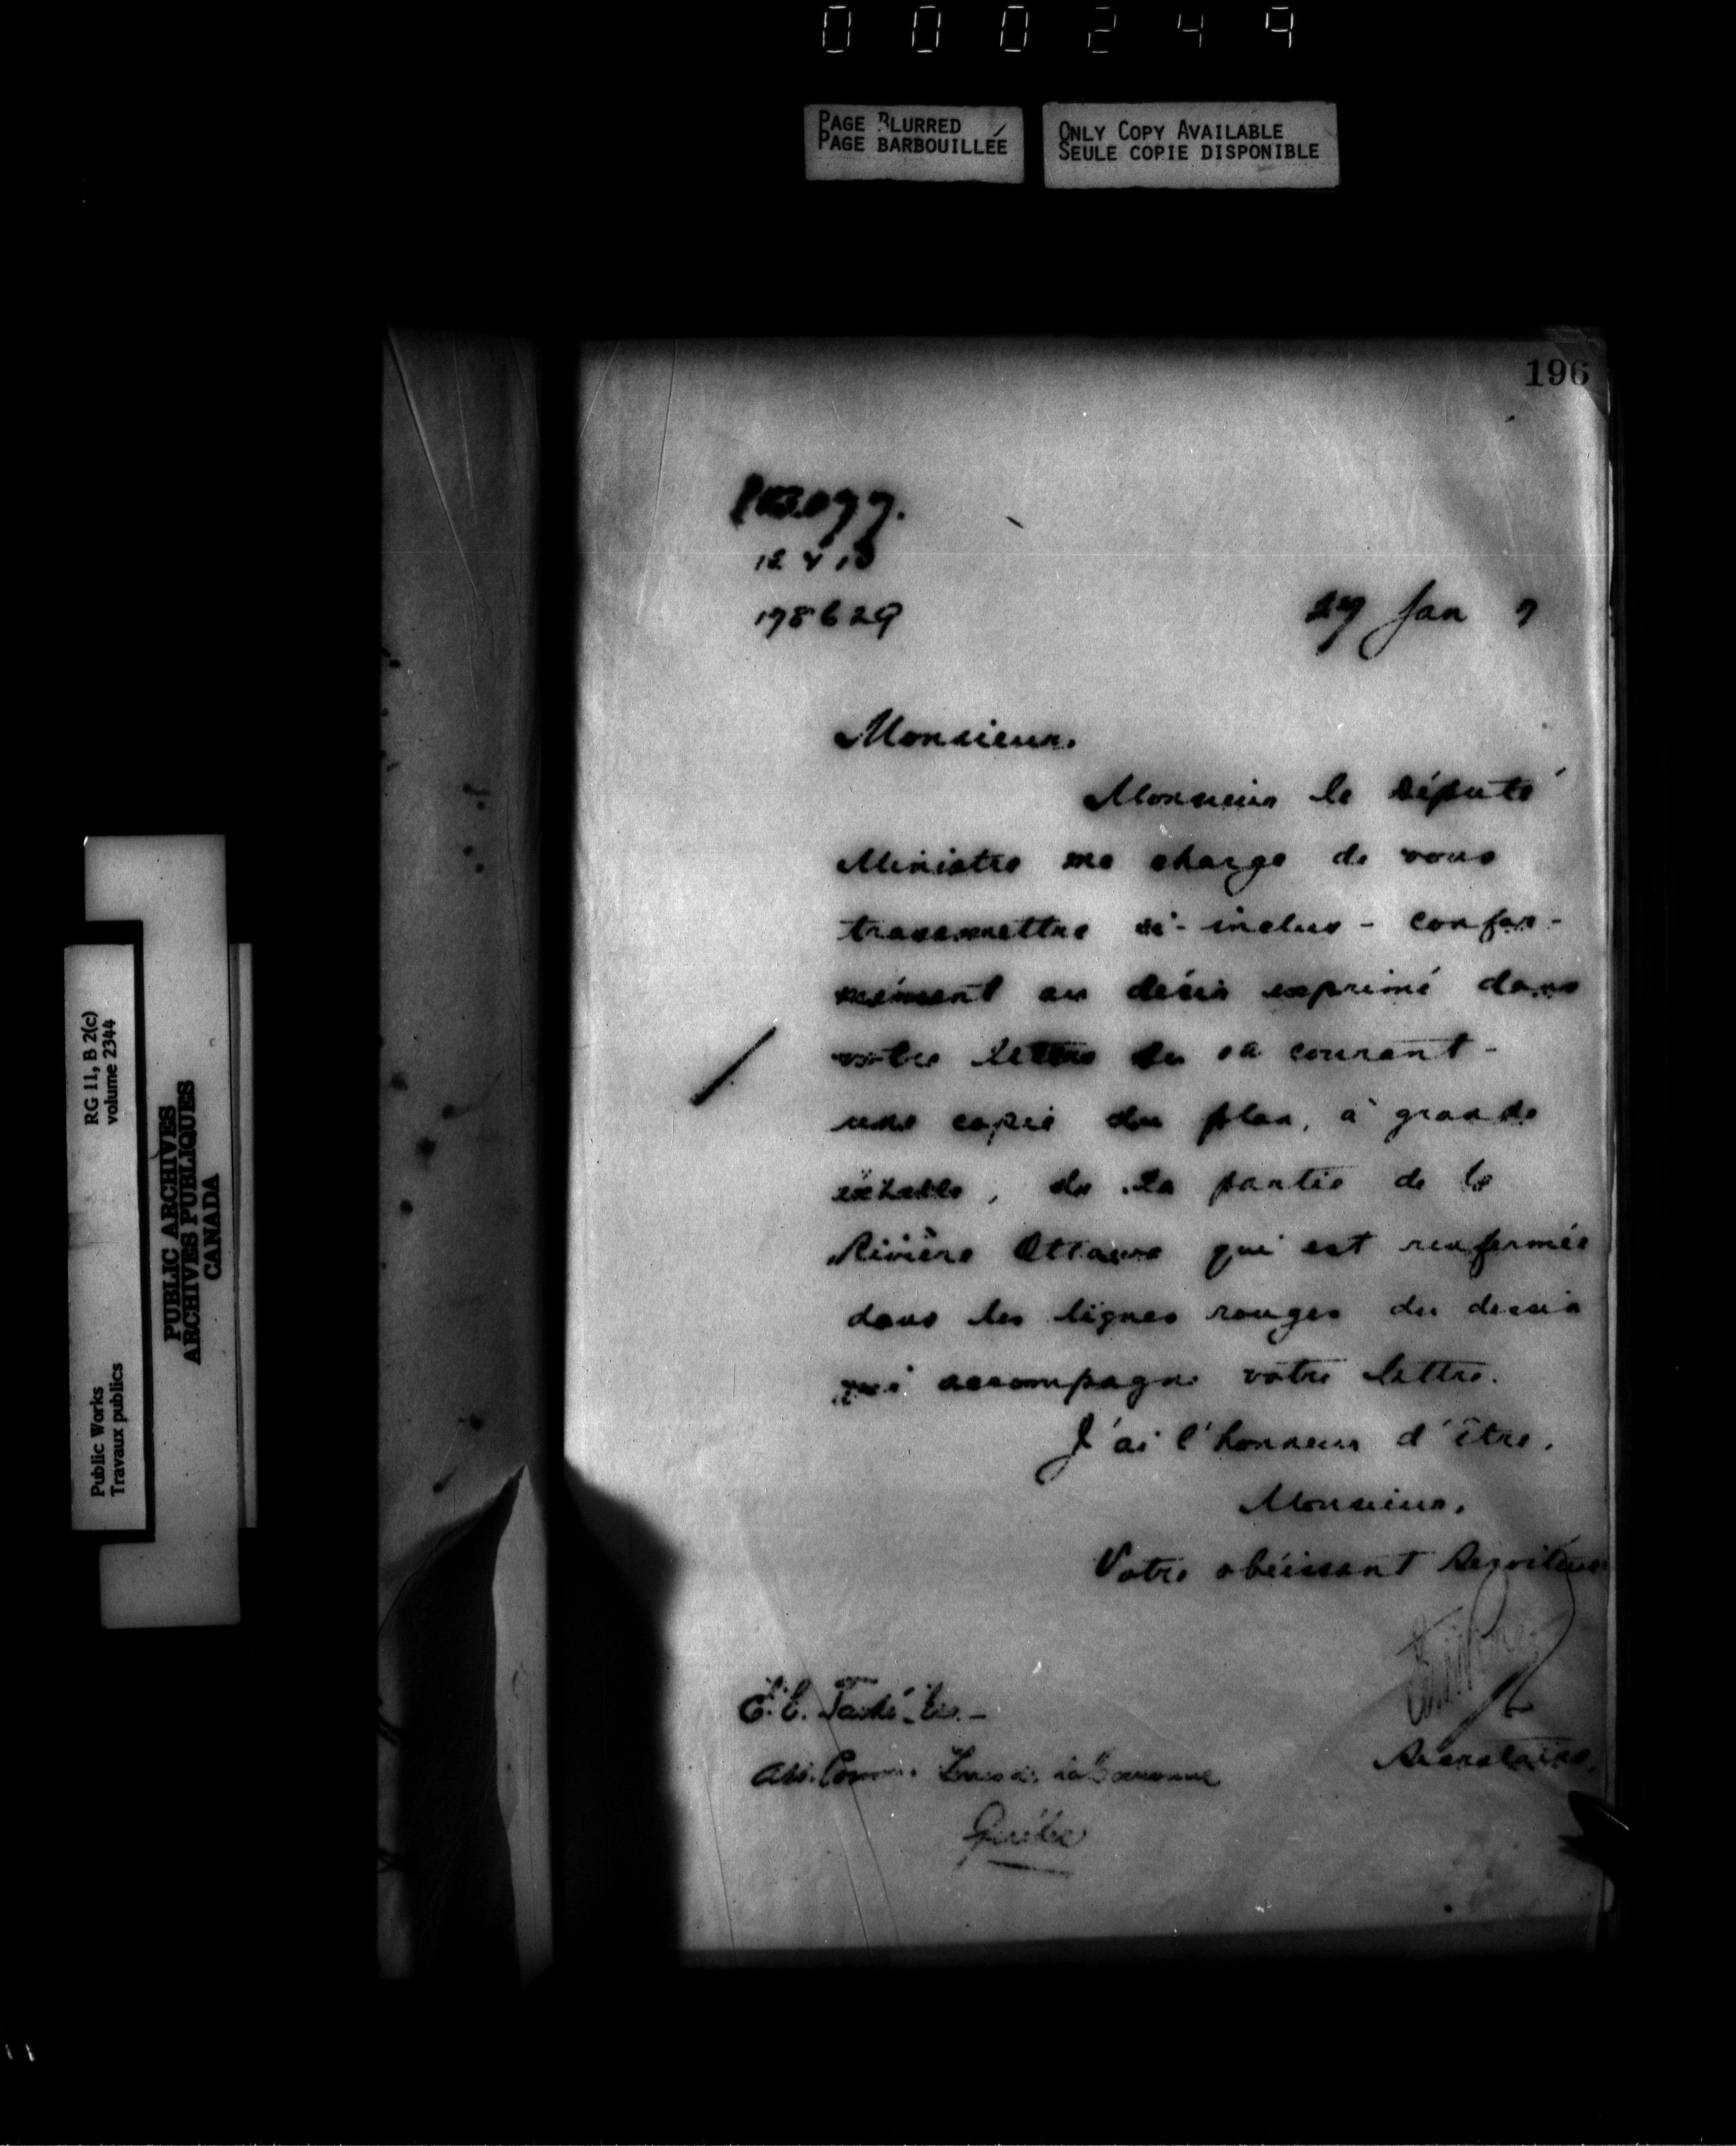 000249
PAGE BLURRED
PAGE BARBOUILLÉE
ONLY COPY AVAILABLE
SEULE COPIE DISPONIBLE
196
178629
27 Jan 7
Monsieur.
Monsieur le Député
Ministre me charge de vous
transmettre ci-inclus - confor-
mément au désir exprimé dans
votre lettre du courant -
une copie du plan, à grande
échelle, de la partie de la
Rivière Ottawa qui est renfermée
dans les lignes rouges du dessin
qui accompagne votre lettre.
J'ai l'honneur d'être,
Monsieur,
Votre obéissant Serviteur
E. E. Taché, Ec. -
Ass. Comm. de la Couronne
Secrétaire,
Québec
RG 11, B 2(c)
volume 2344
Public Works
Travaux publics
PUBLIC ARCHIVES
ARCHIVES PUBLIQUES
CANADA